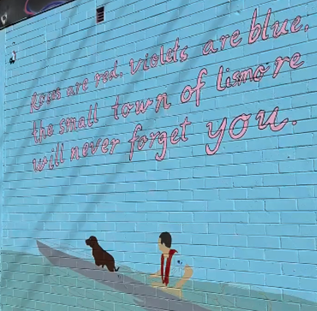 Roses are red, violets are blue,
the small town of lismore
will never forget you.